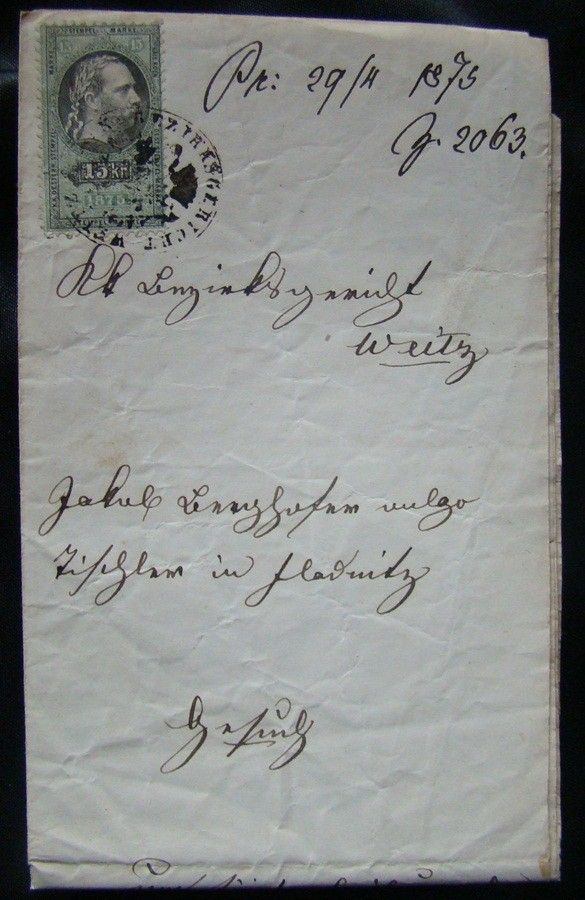 15 STEMPEL MARKE 15
15 kr
1875
K.K. BEZIRKSGERICHT WEITZ
Pr: 29/4 1875
Z. 2063.
KK Bezirksgericht
Weitz
Jakob Berghofer vulgo
Tischler in Fladnitz
Gesuch